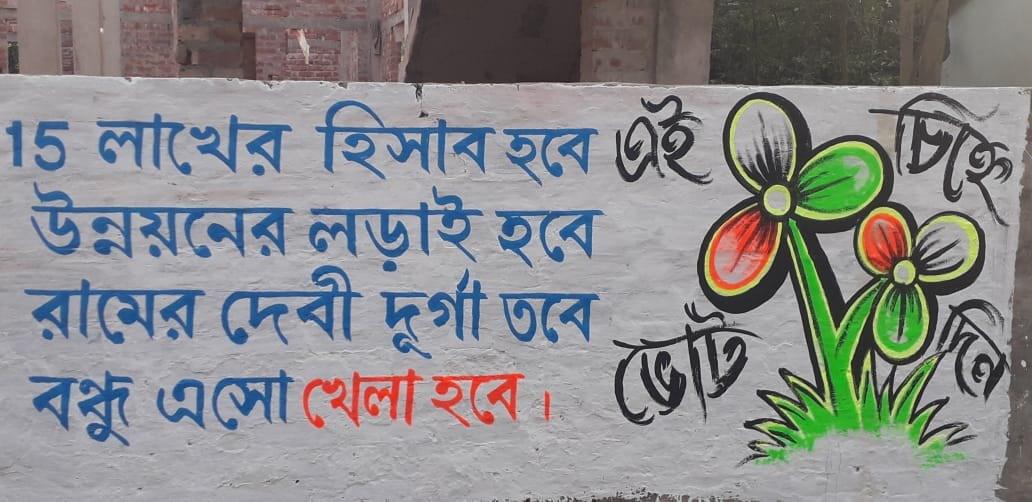 15 লাখের হিসাব হবে
উন্নয়নের লড়াই হবে
রামের দেবী দূর্গা তবে
বন্ধু এসো খেলা হবে।
এই চিহ্নে
ভোট দিন